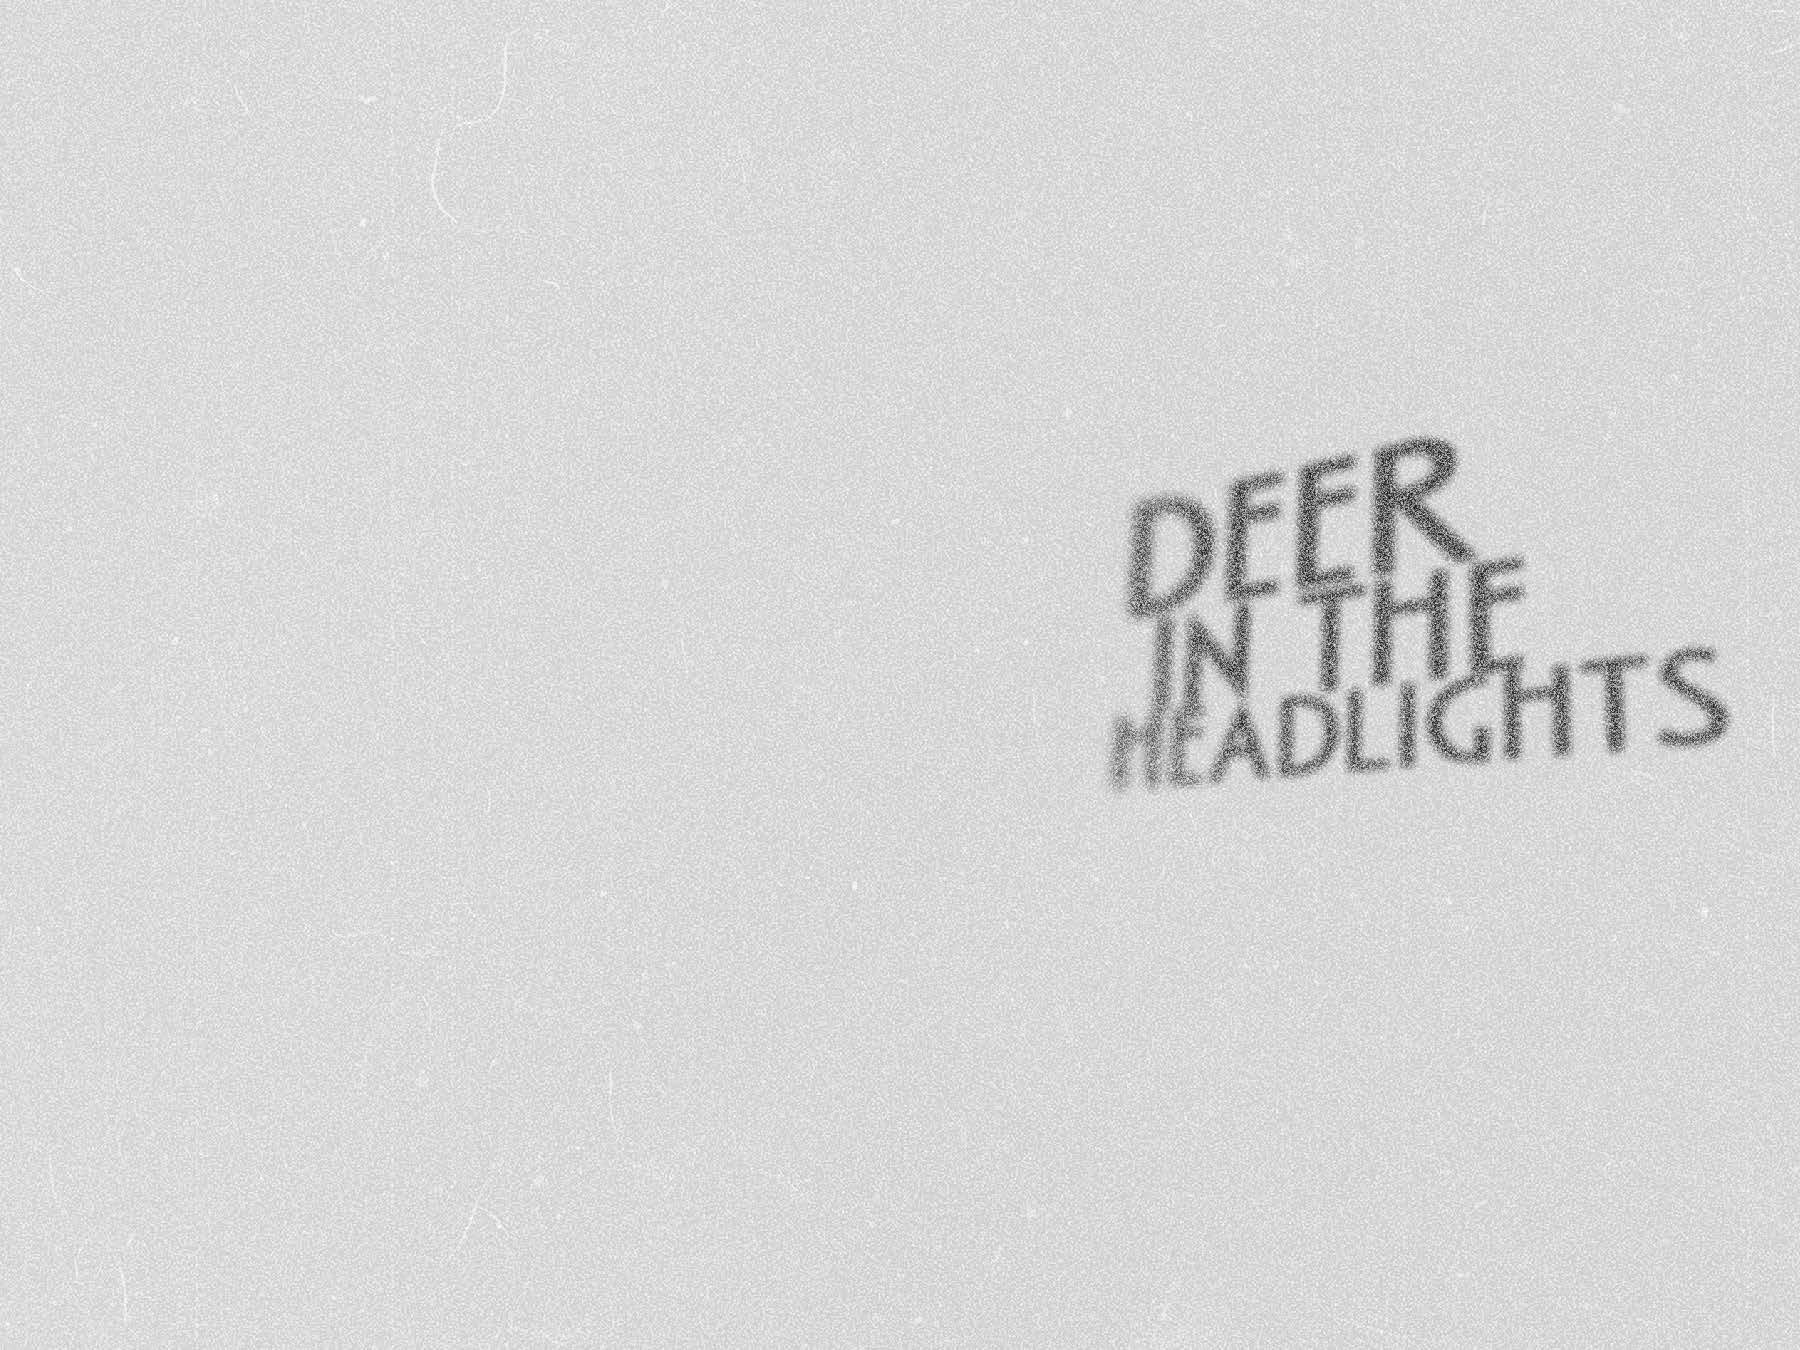 DEER
IN THE
HEADLIGHTS